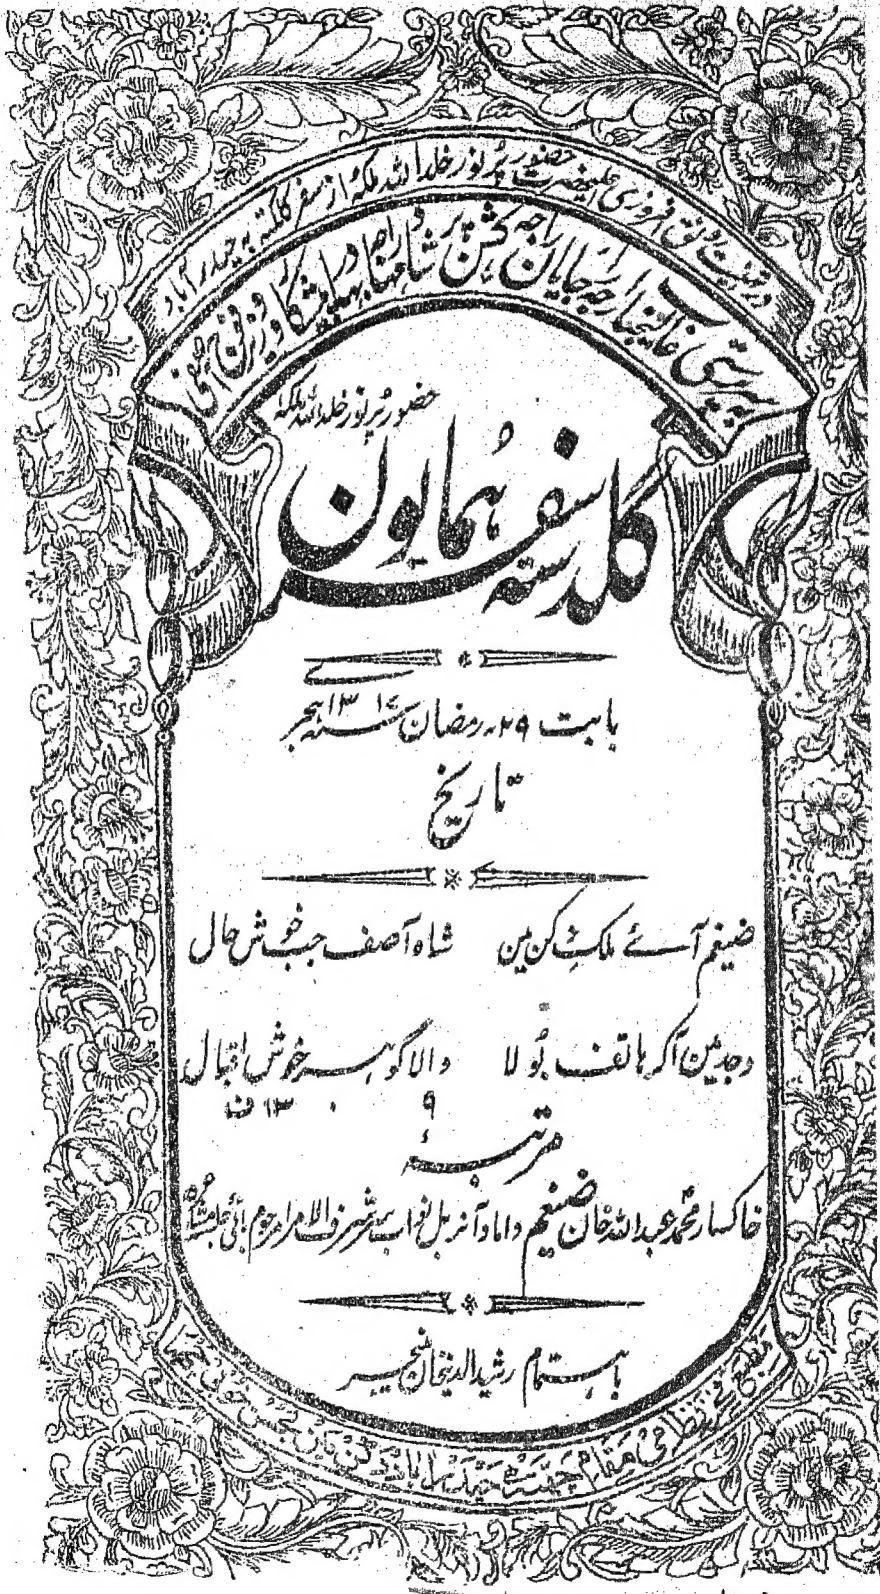 در تہنیت رونق افروزی علیحضرت حضور پُرنور خلد اللہ ملکہٗ از سفر کلکتہ بہ حیدرآباد
بہ سرپرستی عالیجناب راجہ راجایان راجہ کشن پرشاد مہاراجہ بہادر پیشکار و وزیر فوج آصفی
حضور پُرنور خلد اللہ ملکہٗ
گلدستہ سفر ہمایون
بابت ۲۹ رمضان سنہ ۱۳۱۷ ہجری
تاریخ
ضیغم آئے ملک دکن مین شاہ آصف جب خوش حال
وجد مین آکر ہاتف بولا والا گوہر خوش اقبال
۱۳۰۹ ف
مرتبہٗ
خاکسار محمد عبداللہ خان ضیغم داماد آنریبل نواب سر شمس الامرا مرحوم بانی جلسہ مشاعرہ
باہتمام رشید الدین خان منیجر
مطبع فخر نظامی مقام چھتہ حیدرآباد دکن مین